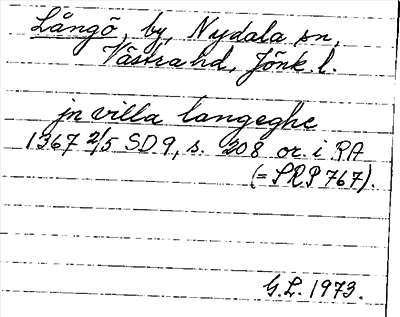 Långö, by, Nydala sn,
Västra hd, Jönk. l.
jn villa langeghe
1367 2/5 SD 9, s. 208 or. i RA
(= SRP 767).
G.L. 1973.